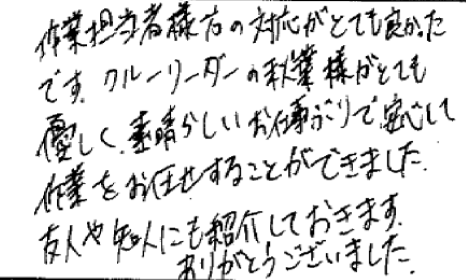 作業担当者様方の対応がとても良かった
です。クルーリーダーの秋葉様がとても
優しく、素晴らしいお仕事ぶりで、安心して
作業をお任せすることができました。
友人や知人にも紹介しておきます。
ありがとうございました。